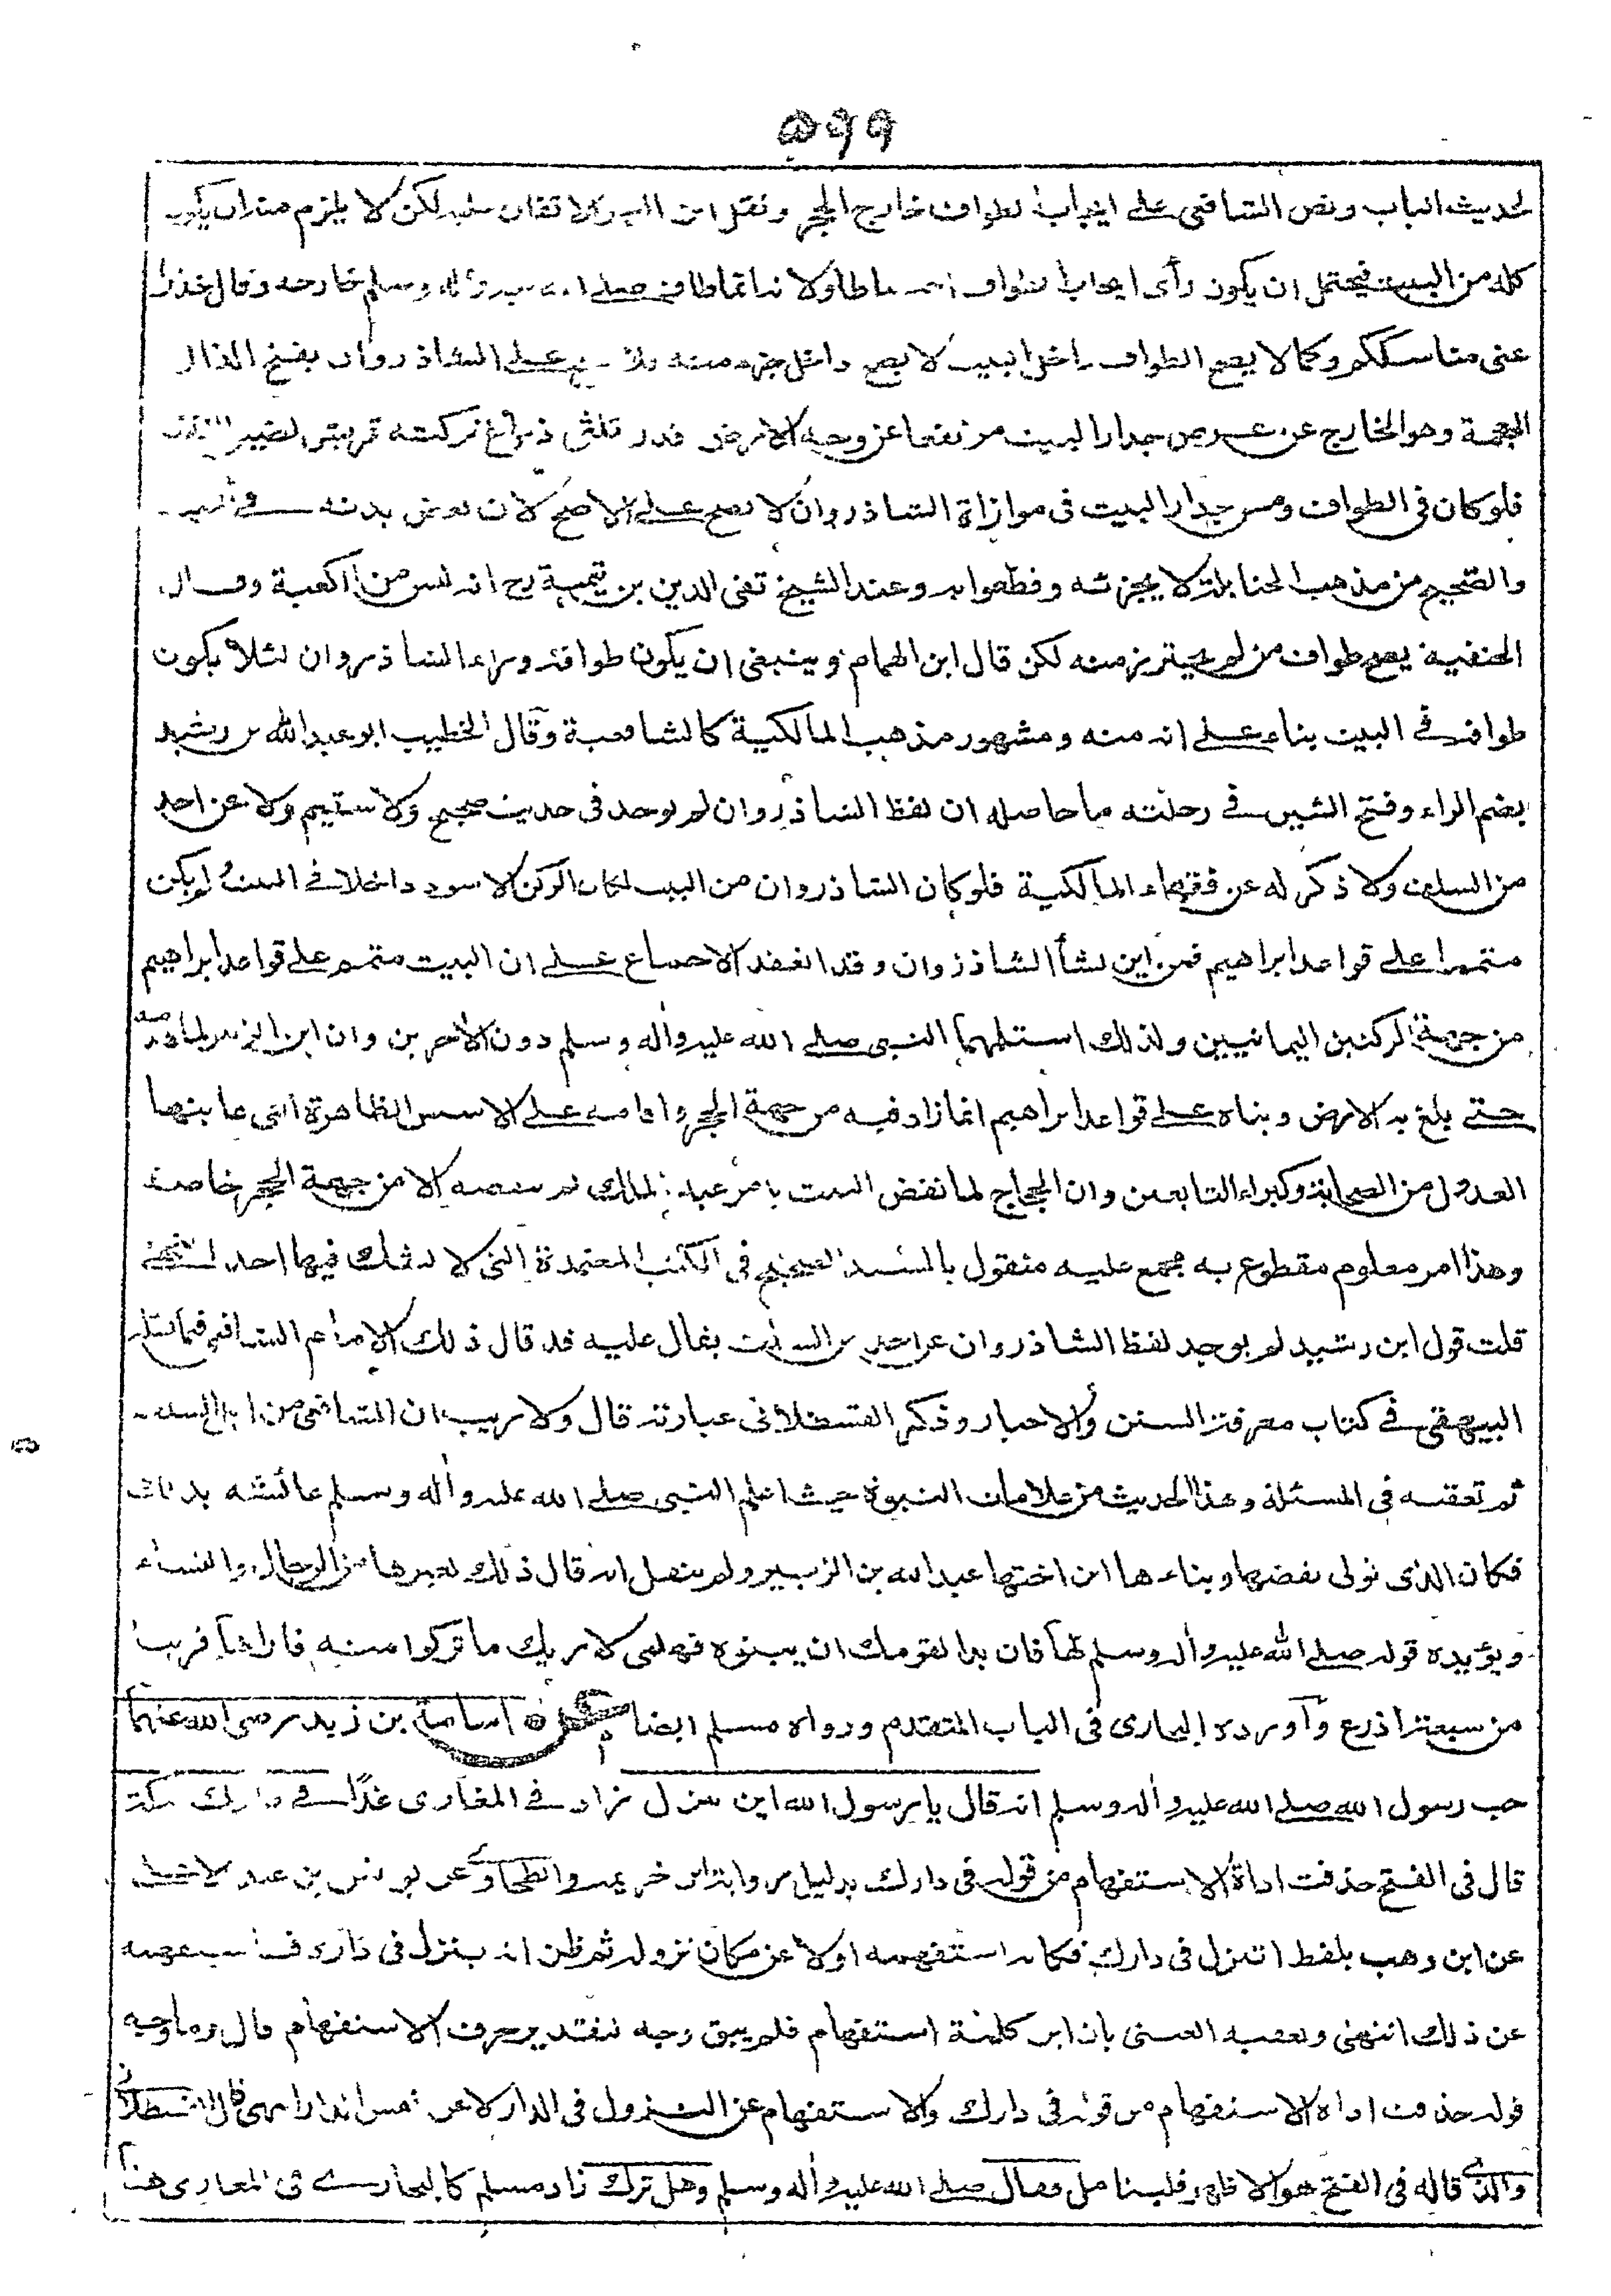 ٥٩٩
لحديث الباب ونص الشافعى على ايجاب الطواف خارج الحجر ونقل ابن عبد البر الاتفاق عليه لكن لا يلزم منه ان يكون
كله من البيت فيحتمل ان يكون رأى ايجاب الطواف احتياطا ولانه انما طاف صلى الله عليه وآله وسلم خارجه وقال خذوا
عنى مناسككم وكما لا يصح الطواف داخل البيت لا يصح داخل جزء منه فلا يصح على الشاذروان بفتح الذال
المعجمة وهو الخارج عن عرض جدار البيت مرتفعا عن وجه الارض قدر ثلثى ذراع تركته قريش لضيق النفقة
فلو كان فى الطواف ومس جدار البيت فى موازاة الشاذروان لا يصح على الاصح لان بعض بدنه فى البيت
والصحيح من مذهب الحنابلة لا يجزئه وقطعوا به وعند الشيخ تقى الدين بن تيمية رح انه ليس من الكعبة وقال
الحنفية يصح طواف من لم يحترز منه لكن قال ابن الهمام وينبغى ان يكون طوافه وراء الشاذروان لئلا يكون
طوافه فى البيت بناء على انه منه ومشهور مذهب المالكية كالشافعية وقال الخطيب ابو عبد الله بن رشيد
بضم الراء وفتح الشين فى رحلته ما حاصله ان لفظ الشاذروان لم يوجد فى حديث صحيح ولا سقيم ولا عن احد
من السلف ولا ذكر له عن فقهاء المالكية فلو كان الشاذروان من البيت لكان الركن الاسود داخلا فى البيت ولم يكن
متمما على قواعد ابراهيم فمن اين نشأ الشاذروان وقد انعقد الاجماع على ان البيت متمم على قواعد ابراهيم
من جهة الركنين اليمانيين ولذلك استلمهما النبى صلى الله عليه وآله وسلم دون الآخرين وان ابن الزبير لما هدمه
حتى بلغ به الارض وبناه على قواعد ابراهيم انما زاد فيه من جهة الحجر واقامه على الاسس الظاهرة التى عاينها
العدول من الصحابة وكبراء التابعين وان الحجاج لما نقض البيت بامر عبد الملك لم ينقضه الا من جهة الحجر خاصة
وهذا امر معلوم مقطوع به مجمع عليه منقول بالسند الصحيح فى الكتب المعتمدة التى لا يشك فيها احد انتهى
قلت قول ابن رشيد لم يوجد لفظ الشاذروان عن احد من السلف يقال عليه قد قال ذلك الامام الشافعى فيما نقله
البيهقى فى كتاب معرفة السنن والاخبار وذكر القسطلانى عبارته قال ولا ريب ان الشافعى من اجل السلف
ثم تعقبه فى المسئلة وهذا الحديث من علامات النبوة حيث اعلم النبى صلى الله عليه وآله وسلم عائشة بذلك
فكان الذى تولى نقضها وبناءها ابن اختها عبد الله بن الزبير ولم ينقل انه قال ذلك لغيرها من الرجال والنساء
ويؤيده قوله صلى الله عليه وآله وسلم لها فان بدا لقومك ان يبنوه فهلمى لاريك ما تركوا منه فاراها قريبا
من سبعة اذرع وآورده البخارى فى الباب المتقدم ورواه مسلم ايضا عن اسامة بن زيد رضى الله عنهما
حب رسول الله صلى الله عليه وآله وسلم انه قال يا رسول الله اين تنزل زاد فى المغازى غدًا فى دارك بمكة
قال فى الفتح حذفت اداة الاستفهام من قوله فى دارك بدليل رواية ابن خزيمة والطحاوى عن يونس بن عبد الاعلى
عن ابن وهب بلفظ اتنزل فى دارك فكانه استفهمه اولا عن مكان نزوله ثم ظن انه ينزل فى داره فاستفهمه
عن ذلك انتهى وتعقبه العينى بان اين كلمة استفهام فلم يبق وجه لتقدير حرف الاستفهام قال وما وجه
قوله حذفت اداة الاستفهام من قوله فى دارك والاستفهام عن النزول فى الدار لا عن نفس الدار انتهى قال القسطلانى
والذى قاله فى الفتح هو الاظهر فليتامل فقال صلى الله عليه وآله وسلم وهل ترك زاد مسلم كالبخارى فى المغازى هنا